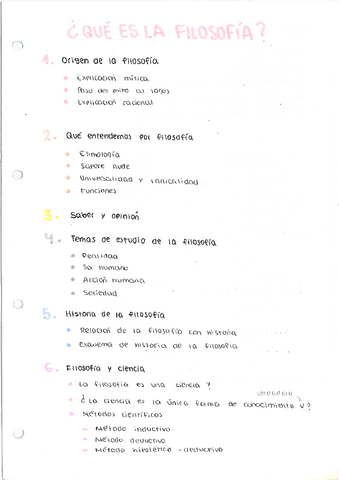 ¿QUÉ ES LA FILOSOFÍA?
1. Origen de la filosofía
Explicación mítica
Paso del mito al logos
Explicación racional
2. Qué entendemos por filosofía
Etimología
Sapere Aude
Universalidad y radicalidad
Funciones
3. Saber y opinión
4. Temas de estudio de la filosofía
Realidad
Ser humano
Acción humana
Sociedad
5. Historia de la filosofía
Relación de la filosofía con historia
Esquema de historia de la filosofía
6. Filosofía y ciencia
La filosofía es una ciencia?
verdadero
¿La ciencia es la única forma de conocimiento v?
Métodos científicos
- Método inductivo
- Método deductivo
- Método hipotético-deductivo